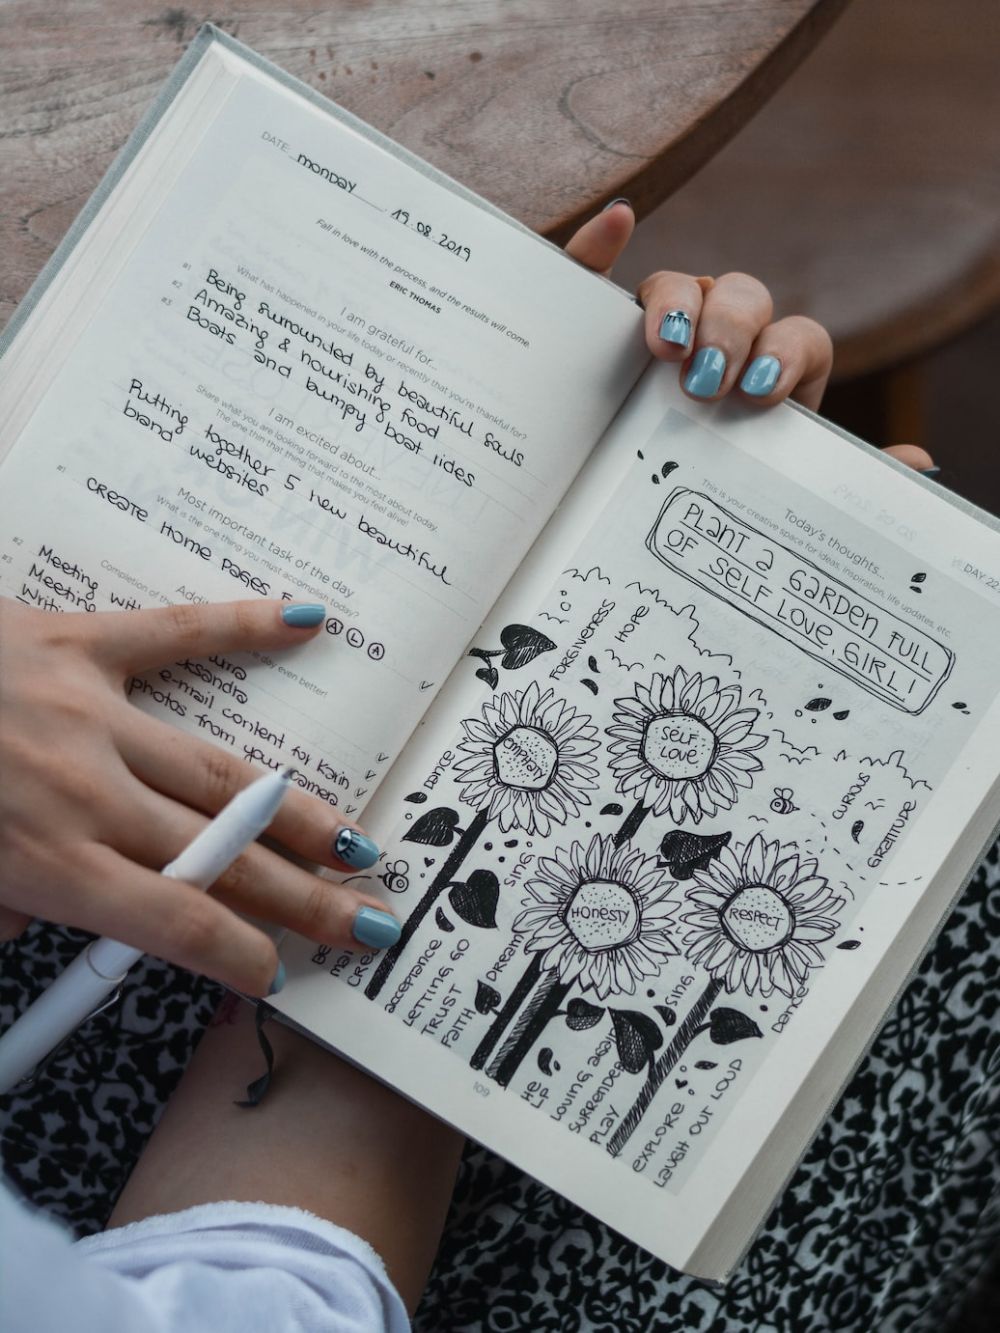 DATE: monday 19.08.2019
Fall in love with the process, and the results will come.
ERIC THOMAS
I am grateful for...
What has happened in your life today or recently that you're thankful for?
#1 Being surrounded by beautiful souls
#2 Amazing & nourishing food
#3 Boats and bumpy boat rides
I am excited about...
Share what you are looking forward to the most about today.
The one thin that thing that makes you feel alive!
Putting together 5 new beautiful
brand websites
Most important task of the day
What is the one thing you must accomplish today?
#1 CREATE HOME PAGES
ALA
Completion of the
day even better!
#2 Meeting with
#3 Meeting
e-mail content for Karin
photos from your camera
DAY 22
Today's thoughts...
This is your creative space for ideas, inspiration, life updates, etc.
PLANT a GARDEN FULL
OF SELF LOVE, GIRL!
FORGIVENESS
HOPE
DANCE
EMPHATY
SELF
LOVE
CURIOUS
GRATITUDE
SING
HONESTY
RESPECT
acceptance
LETTING GO
TRUST
FAITH
DREAM
SING
Dance
HE
LP
LOVING again
SURRENDER
PLAY
EXPLORE
LAUGH OUT LOUD
109